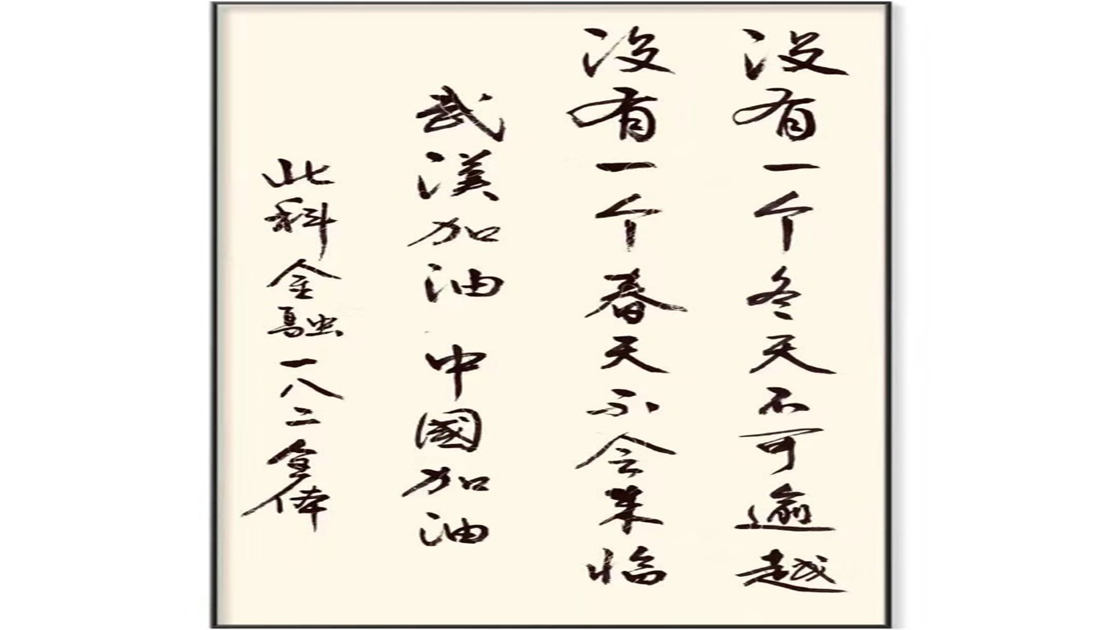 没有一个冬天不可逾越
没有一个春天不会来临
武漢加油 中國加油
此科金融一八二全体